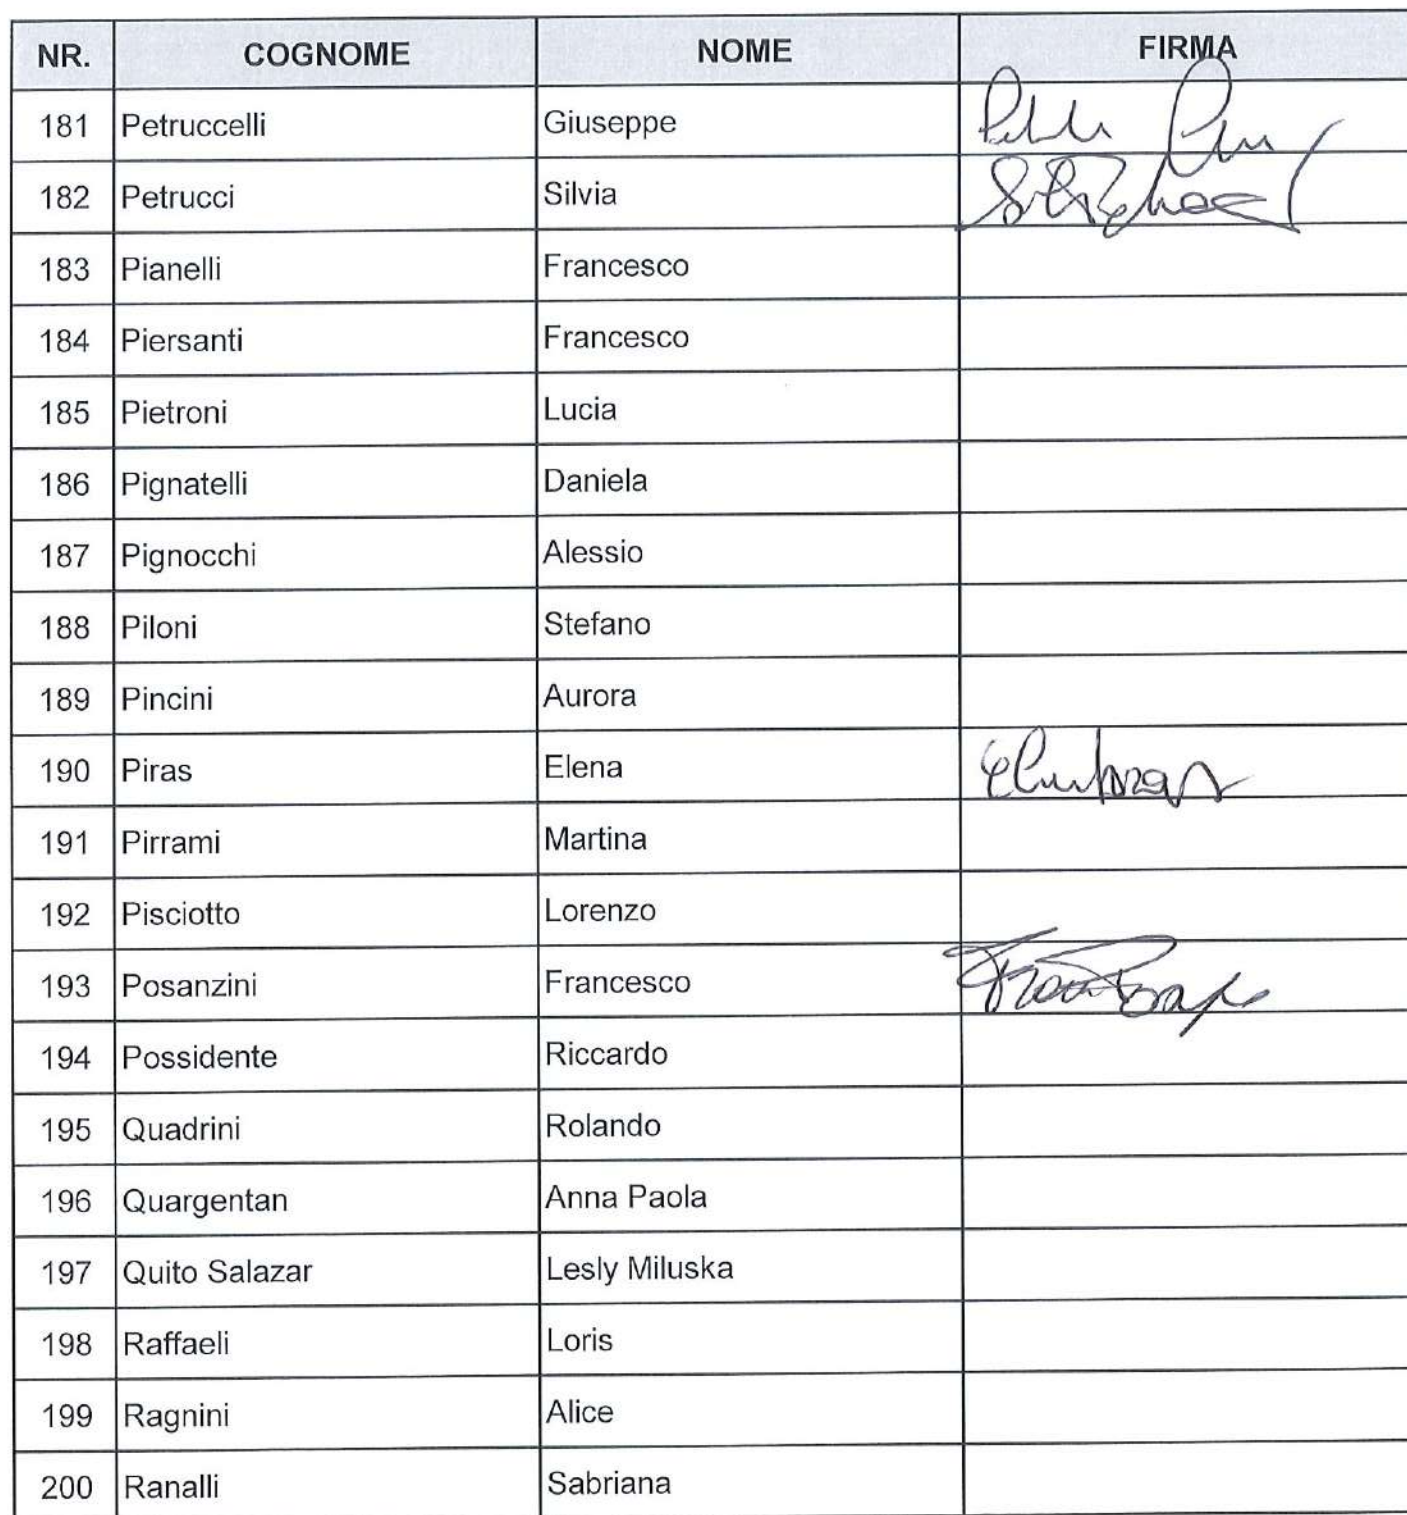 NR. COGNOME NOME FIRMA
181 Petruccelli Giuseppe
182 Petrucci Silvia
183 Pianelli Francesco
184 Piersanti Francesco
185 Pietroni Lucia
186 Pignatelli Daniela
187 Pignocchi Alessio
188 Piloni Stefano
189 Pincini Aurora
190 Piras Elena
191 Pirrami Martina
192 Pisciotto Lorenzo
193 Posanzini Francesco
194 Possidente Riccardo
195 Quadrini Rolando
196 Quargentan Anna Paola
197 Quito Salazar Lesly Miluska
198 Raffaeli Loris
199 Ragnini Alice
200 Ranalli Sabriana